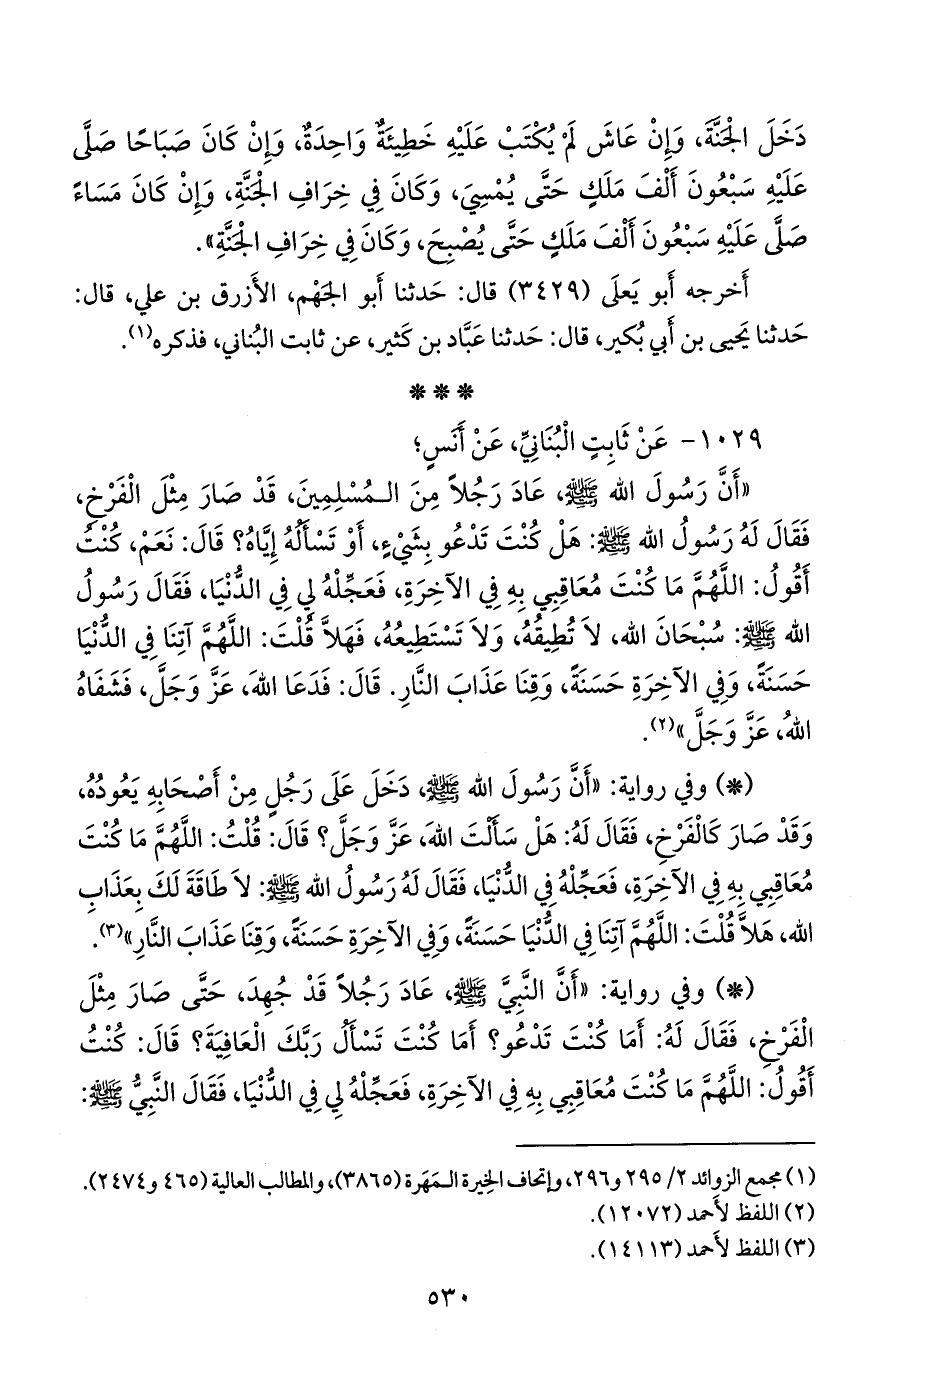 دَخَلَ الْجَنَّةَ، وَإِنْ عَاشَ لَمْ يُكْتَبْ عَلَيْهِ خَطِيئَةٌ وَاحِدَةٌ، وَإِنْ كَانَ صَبَاحًا صَلَّى
عَلَيْهِ سَبْعُونَ أَلْفَ مَلَكٍ حَتَّى يُمْسِيَ، وَكَانَ فِي خِرَافِ الْجَنَّةِ، وَإِنْ كَانَ مَسَاءً
صَلَّى عَلَيْهِ سَبْعُونَ أَلْفَ مَلَكٍ حَتَّى يُصْبِحَ، وَكَانَ فِي خِرَافِ الْجَنَّةِ».
أخرجه أبو يَعلَى (٣٤٢٩) قال: حَدثنا أبو الجَهْم، الأزرق بن علي، قال:
حَدثنا يَحيى بن أبي بُكير، قال: حَدثنا عَبَّاد بن كَثير، عن ثابت البُناني، فذكره(١).
* * *
١٠٢٩- عَنْ ثَابِتٍ الْبُنَانِيِّ، عَنْ أَنَسٍ؛
«أَنَّ رَسُولَ الله ﷺ، عَادَ رَجُلاً مِنَ الـمُسْلِمِينَ، قَدْ صَارَ مِثْلَ الْفَرْخِ،
فَقَالَ لَهُ رَسُولُ الله ﷺ: هَلْ كُنْتَ تَدْعُو بِشَيْءٍ، أَوْ تَسْأَلُهُ إِيَّاهُ؟ قَالَ: نَعَمْ، كُنْتُ
أَقُولُ: اللَّهُمَّ مَا كُنْتَ مُعَاقِبِي بِهِ فِي الآخِرَةِ، فَعَجِّلْهُ لِي فِي الدُّنْيَا، فَقَالَ رَسُولُ
الله ﷺ: سُبْحَانَ الله، لاَ تُطِيقُهُ، وَلاَ تَسْتَطِيعُهُ، فَهَلاَّ قُلْتَ: اللَّهُمَّ آتِنَا فِي الدُّنْيَا
حَسَنَةً، وَفِي الآخِرَةِ حَسَنَةً، وَقِنَا عَذَابَ النَّارِ. قَالَ: فَدَعَا اللهَ، عَزَّ وَجَلَّ، فَشَفَاهُ
اللهُ، عَزَّ وَجَلَّ»(٢).
(*) وفي رواية: «أَنَّ رَسُولَ الله ﷺ، دَخَلَ عَلَى رَجُلٍ مِنْ أَصْحَابِهِ يَعُودُهُ،
وَقَدْ صَارَ كَالْفَرْخِ، فَقَالَ لَهُ: هَلْ سَأَلْتَ اللهَ، عَزَّ وَجَلَّ؟ قَالَ: قُلْتُ: اللَّهُمَّ مَا كُنْتَ
مُعَاقِبِي بِهِ فِي الآخِرَةِ، فَعَجِّلْهُ فِي الدُّنْيَا، فَقَالَ لَهُ رَسُولُ الله ﷺ: لاَ طَاقَةَ لَكَ بِعَذَابِ
الله، هَلاَّ قُلْتَ: اللَّهُمَّ آتِنَا فِي الدُّنْيَا حَسَنَةً، وَفِي الآخِرَةِ حَسَنَةً، وَقِنَا عَذَابَ النَّارِ»(٣).
(*) وفي رواية: «أَنَّ النَّبِيَّ ﷺ، عَادَ رَجُلاً قَدْ جُهِدَ، حَتَّى صَارَ مِثْلَ
الْفَرْخِ، فَقَالَ لَهُ: أَمَا كُنْتَ تَدْعُو؟ أَمَا كُنْتَ تَسْأَلُ رَبَّكَ الْعَافِيَةَ؟ قَالَ: كُنْتُ
أَقُولُ: اللَّهُمَّ مَا كُنْتَ مُعَاقِبِي بِهِ فِي الآخِرَةِ، فَعَجِّلْهُ لِي فِي الدُّنْيَا، فَقَالَ النَّبِيُّ ﷺ:
(١) مجمع الزوائد ٢/ ٢٩٥ و٢٩٦، وإتحاف الخِيرة الـمَهَرة (٣٨٦٥)، والمطالب العالية (٤٦٥ و٢٤٧٤).
(٢) اللفظ لأحمد (١٢٠٧٢).
(٣) اللفظ لأحمد (١٤١١٣).
٥٣٠